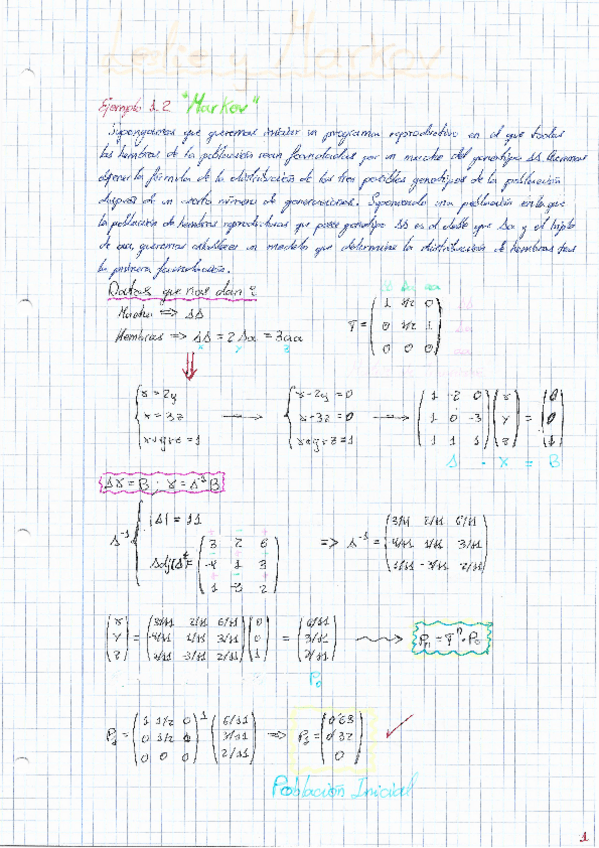 Leslie y Markov
Ejemplo 1.2 "Markov"
Supongamos que queremos iniciar un programa reproductivo en el que todas
las hembras de la población sean fecundadas por un macho del genotipo AA. Queremos
obtener la fórmula de la distribución de los tres posibles genotipos de la población
después de un cierto número de generaciones. Suponiendo una población en la que
la población de hembras reproductoras que posee genotipo AA es el doble que Aa y el triple
de aa, queremos establecer un modelo que determine la distribución de hembras tras
la primera fecundación.
Datos que nos dan:
AA Aa aa
Macho => AA
Hembras => AA = 2Aa = 3aa
x y z
T = (1 1/2 0) AA
(0 1/2 1) Aa
(0 0 0) aa
{x = 2y → {x - 2y = 0 → (1 -2 0) (x) = (0)
{x = 3z {x - 3z = 0 (1 0 -3) (y) (0)
{x+y+z = 1 {x+y+z = 1 (1 1 1) (z) (1)
A · X = B
AX = B ; X = A⁻¹B
A⁻¹ { |A| = 11
Adj(A)ᵗ = (3 2 6)
(-4 1 3)
(1 -3 2)
=> A⁻¹ = (3/11 2/11 6/11)
(-4/11 1/11 3/11)
(1/11 -3/11 2/11)
(x) = (3/11 2/11 6/11) (0) = (6/11)
(y) (-4/11 1/11 3/11) (0) (3/11)
(z) (1/11 -3/11 2/11) (1) (2/11)
P₀
Pₙ = Tⁿ · P₀
P₁ = (1 1/2 0)¹ (6/11) => P₁ = (0'68)
(0 1/2 1) (3/11) (0'32)
(0 0 0) (2/11) (0)
Población Inicial
1